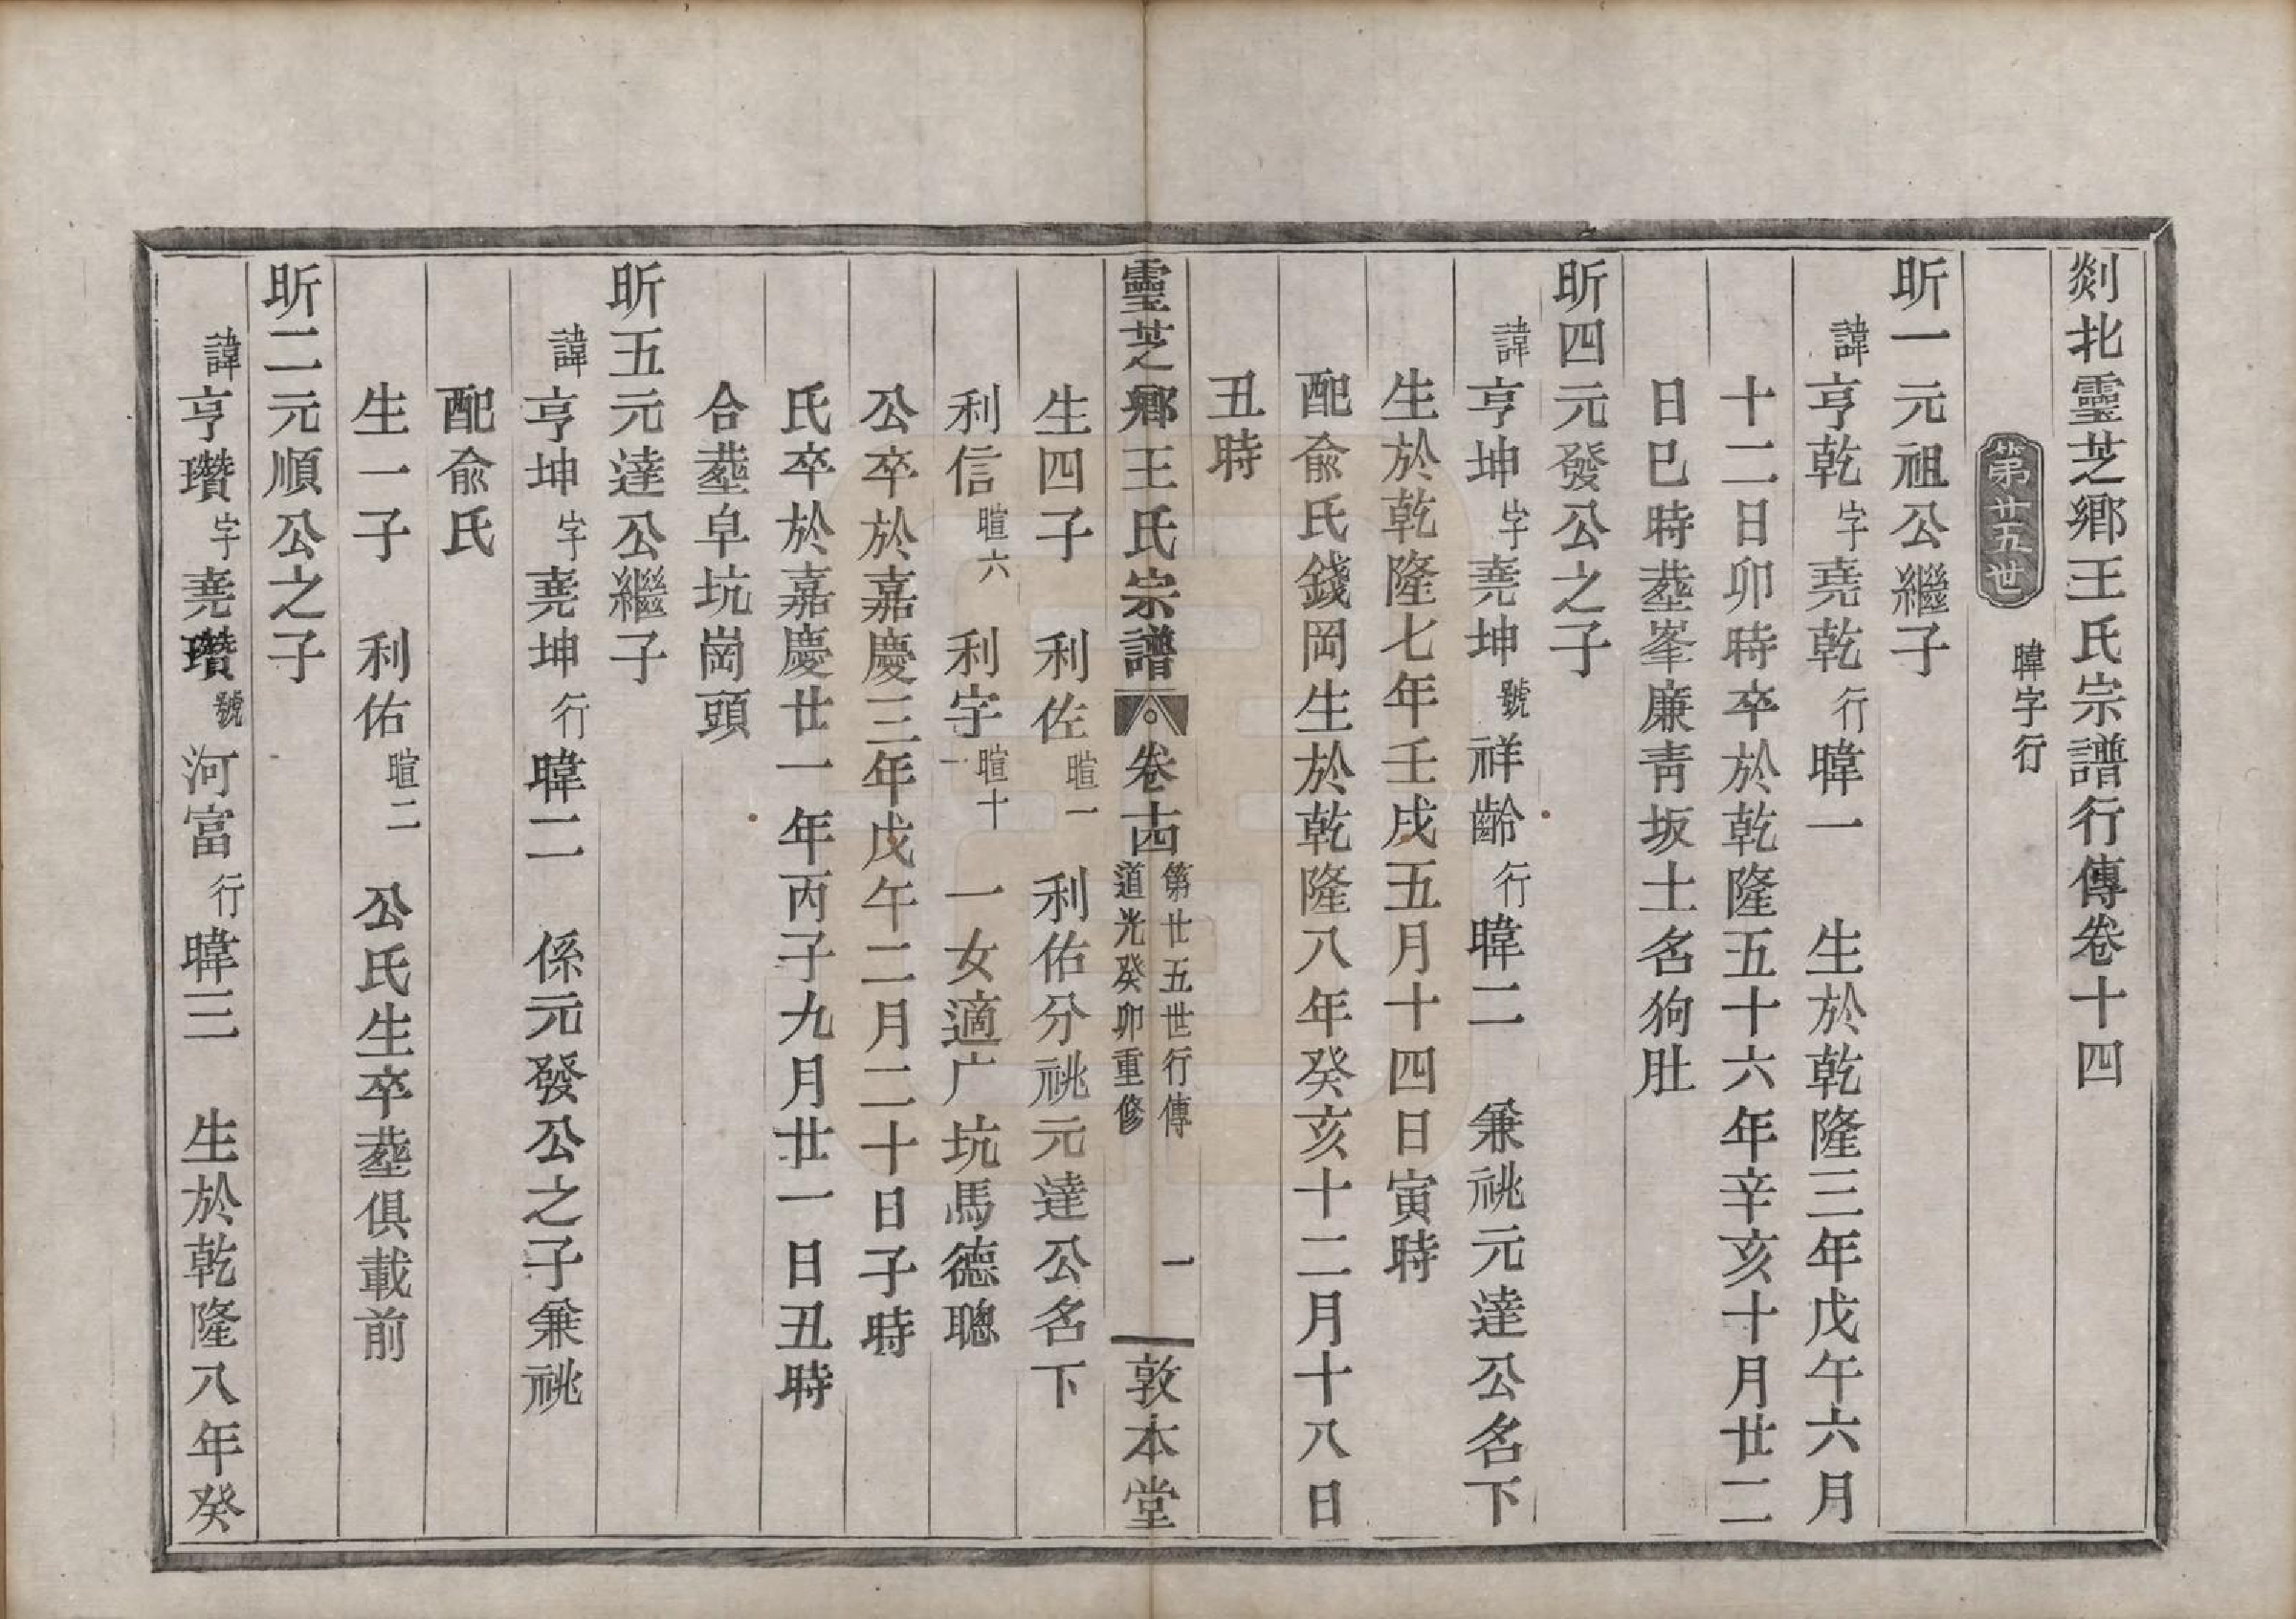 剡北靈芝鄉王氏宗譜行傳卷十四
第廿五世 暐字行
昕一元祖公繼子
諱亨乾字堯乾行暐一 生於乾隆三年戊午六月
十二日卯時卒於乾隆五十六年辛亥十月廿二
日巳時塟峯廉青坂土名狗肚
昕四元發公之子
諱亨坤字堯坤號祥齡行暐二 兼祧元達公名下
生於乾隆七年壬戌五月十四日寅時
配俞氏錢岡生於乾隆八年癸亥十二月十八日
丑時
靈芝鄉王氏宗譜 卷十四 第廿五世行傳 道光癸卯重修 一 敦本堂
生四子 利佐暄一 利佑分祧元達公名下
利信暄六 利字暄十一 一女適广坑馬德聰
公卒於嘉慶三年戊午二月二十日子時
氏卒於嘉慶廿一年丙子九月廿一日丑時
合塟皁坑崗頭
昕五元達公繼子
諱亨坤字堯坤行暐二 係元發公之子兼祧
配俞氏
生一子 利佑暄二 公氏生卒塟俱載前
昕二元順公之子
諱亨瓚字堯瓚號河富行暐三 生於乾隆八年癸